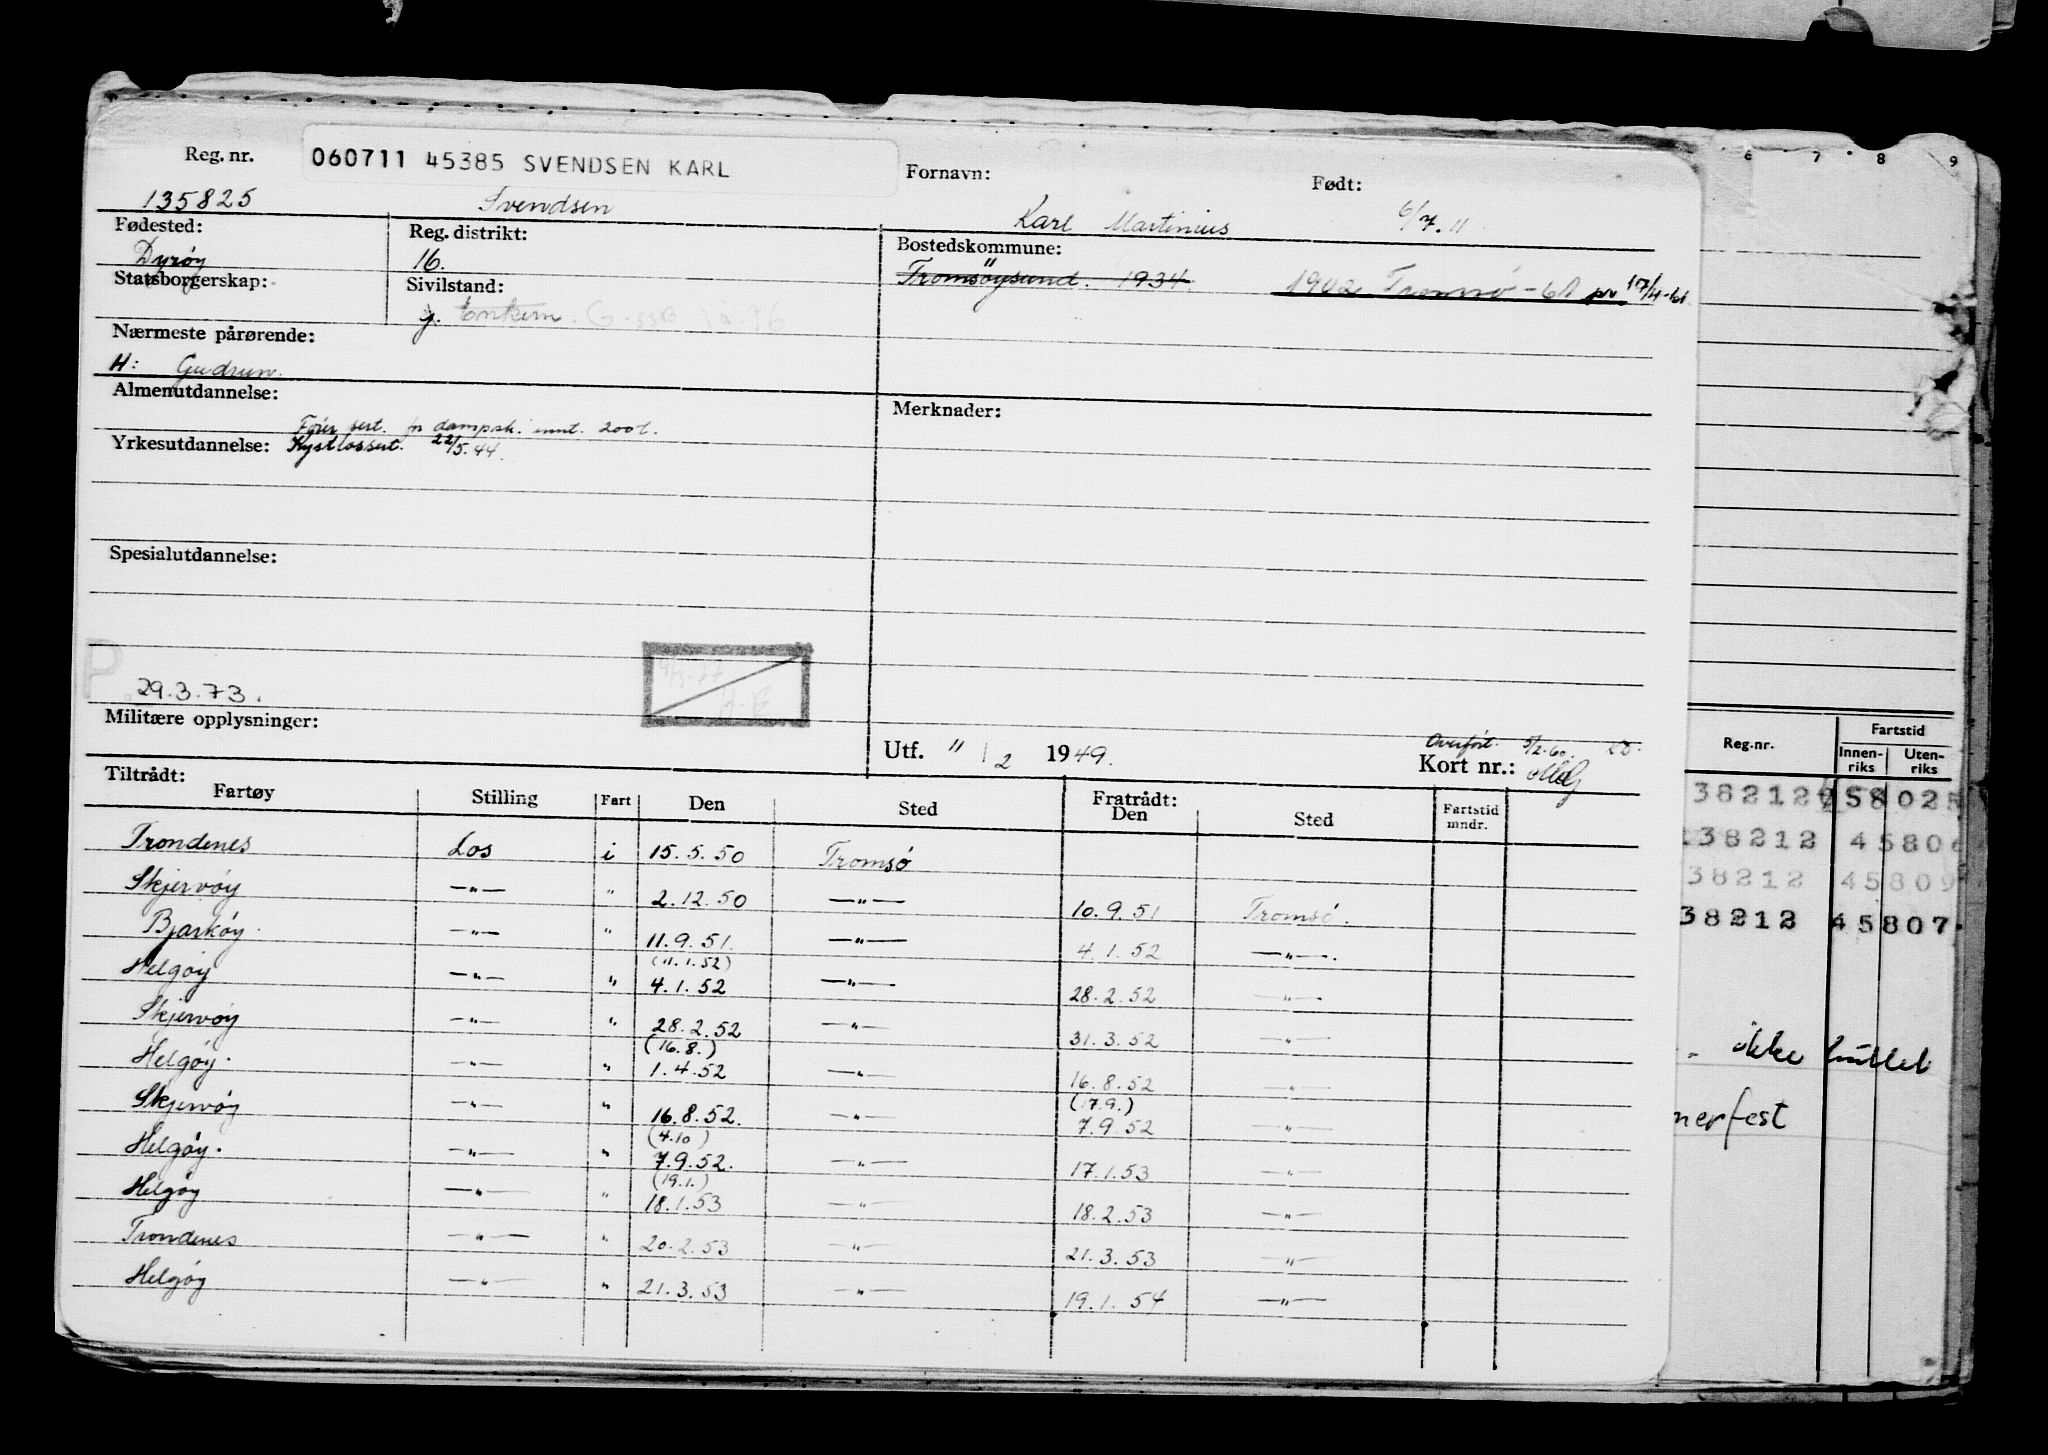 6 7 8 9
Reg. nr. 060711 45385 SVENDSEN KARL Fornavn: Født:
135825 Svendsen Karl Martinius 6/7.11
Fødested: Reg. distrikt: Bostedskommune:
Dyrøy 16. Tromsöysund. 1934. 1902 Tromsø - 61 pr 17/4-61
Statsborgerskap: Sivilstand:
g. Enkem.
Nærmeste pårørende:
H: Gudrun.
Almenutdannelse: Merknader:
Fører sert. for dampsk. innt. 200 t.
Yrkesutdannelse: Kystlossert. 22/5.44.
Spesialutdannelse:
P.
29.3.73.
Militære opplysninger:
Utf. 11 / 2 1949. Overført. 5/2.60. Kort nr.:
Reg.nr. Fartstid
Innen-riks Uten-riks
Tiltrådt: Fratrådt:
Fartøy Stilling Fart Den Sted Den Sted Fartstid mndr.
Trondenes Los i 15.5.50 Tromsø
Skjervøy —"— " 2.12.50 —"— 10.9.51 Tromsø.
Bjarkøy. —"— " 11.9.51. —"— 4.1.52 —"—.
(11.1.52)
Helgøy —"— " 4.1.52 —"— 28.2.52 —"—
Skjervøy —"— " 28.2.52 —"— 31.3.52 —"—
(16.8.)
Helgøy. —"— " 1.4.52 —"— 16.8.52 —"—
(17.9.)
Skjervøy —"— " 16.8.52. —"— 7.9.52 —"—
(4.10)
Helgøy. —"— " 7.9.52. —"— 17.1.53 —"—
(19.1.)
Helgøy —"— " 18.1.53 —"— 18.2.53 —"—
Trondenes —"— " 20.2.53 —"— 21.3.53 —"—
Helgøy —"— " 21.3.53 —"— 19.1.54 —"—
38212 45802
138212 4580
38212 45809
38212 45807
ikke hullet
merfest